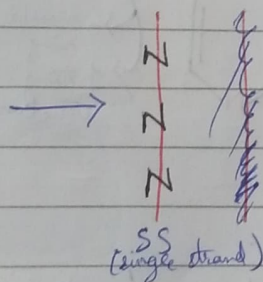 Z
Z
Z
SS
(single strand)